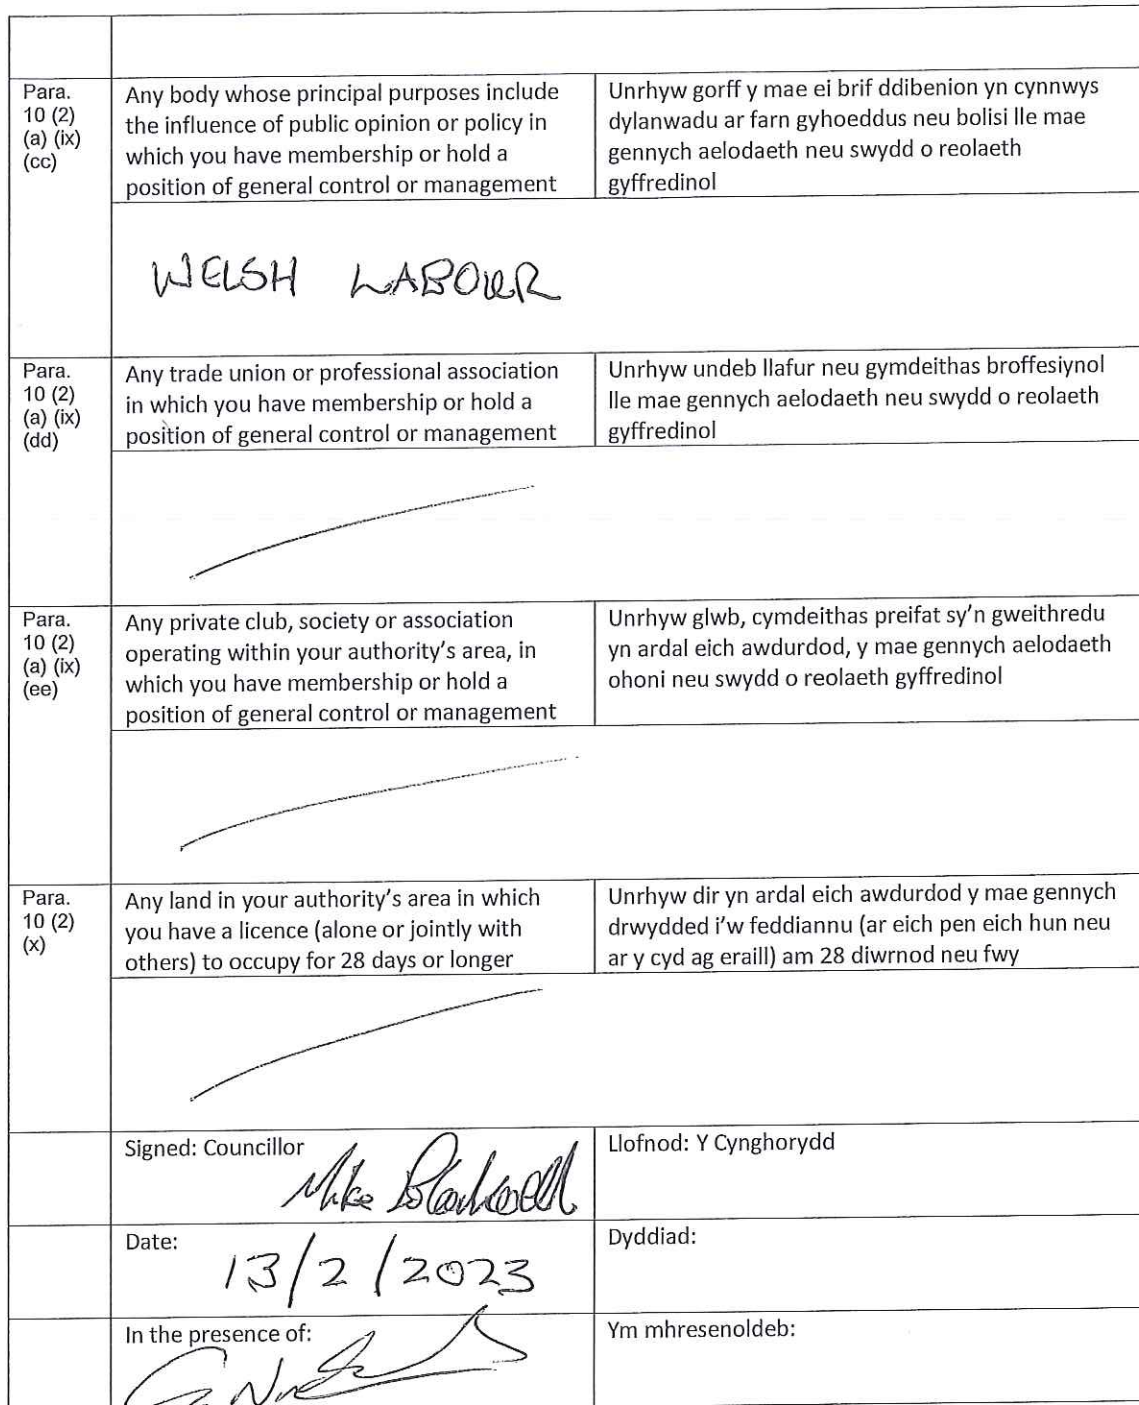 Para.
10 (2)
(a) (ix)
(cc)
Any body whose principal purposes include
the influence of public opinion or policy in
which you have membership or hold a
position of general control or management
Unrhyw gorff y mae ei brif ddibenion yn cynnwys
dylanwadu ar farn gyhoeddus neu bolisi lle mae
gennych aelodaeth neu swydd o reolaeth
gyffredinol
WELSH LABOUR
Para.
10 (2)
(a) (ix)
(dd)
Any trade union or professional association
in which you have membership or hold a
position of general control or management
Unrhyw undeb llafur neu gymdeithas broffesiynol
lle mae gennych aelodaeth neu swydd o reolaeth
gyffredinol
Para.
10 (2)
(a) (ix)
(ee)
Any private club, society or association
operating within your authority's area, in
which you have membership or hold a
position of general control or management
Unrhyw glwb, cymdeithas preifat sy'n gweithredu
yn ardal eich awdurdod, y mae gennych aelodaeth
ohoni neu swydd o reolaeth gyffredinol
Para.
10 (2)
(x)
Any land in your authority's area in which
you have a licence (alone or jointly with
others) to occupy for 28 days or longer
Unrhyw dir yn ardal eich awdurdod y mae gennych
drwydded i'w feddiannu (ar eich pen eich hun neu
ar y cyd ag eraill) am 28 diwrnod neu fwy
Signed: Councillor
Mike
Llofnod: Y Cynghorydd
Date:
13/2/2023
Dyddiad:
In the presence of:
Ym mhresenoldeb: